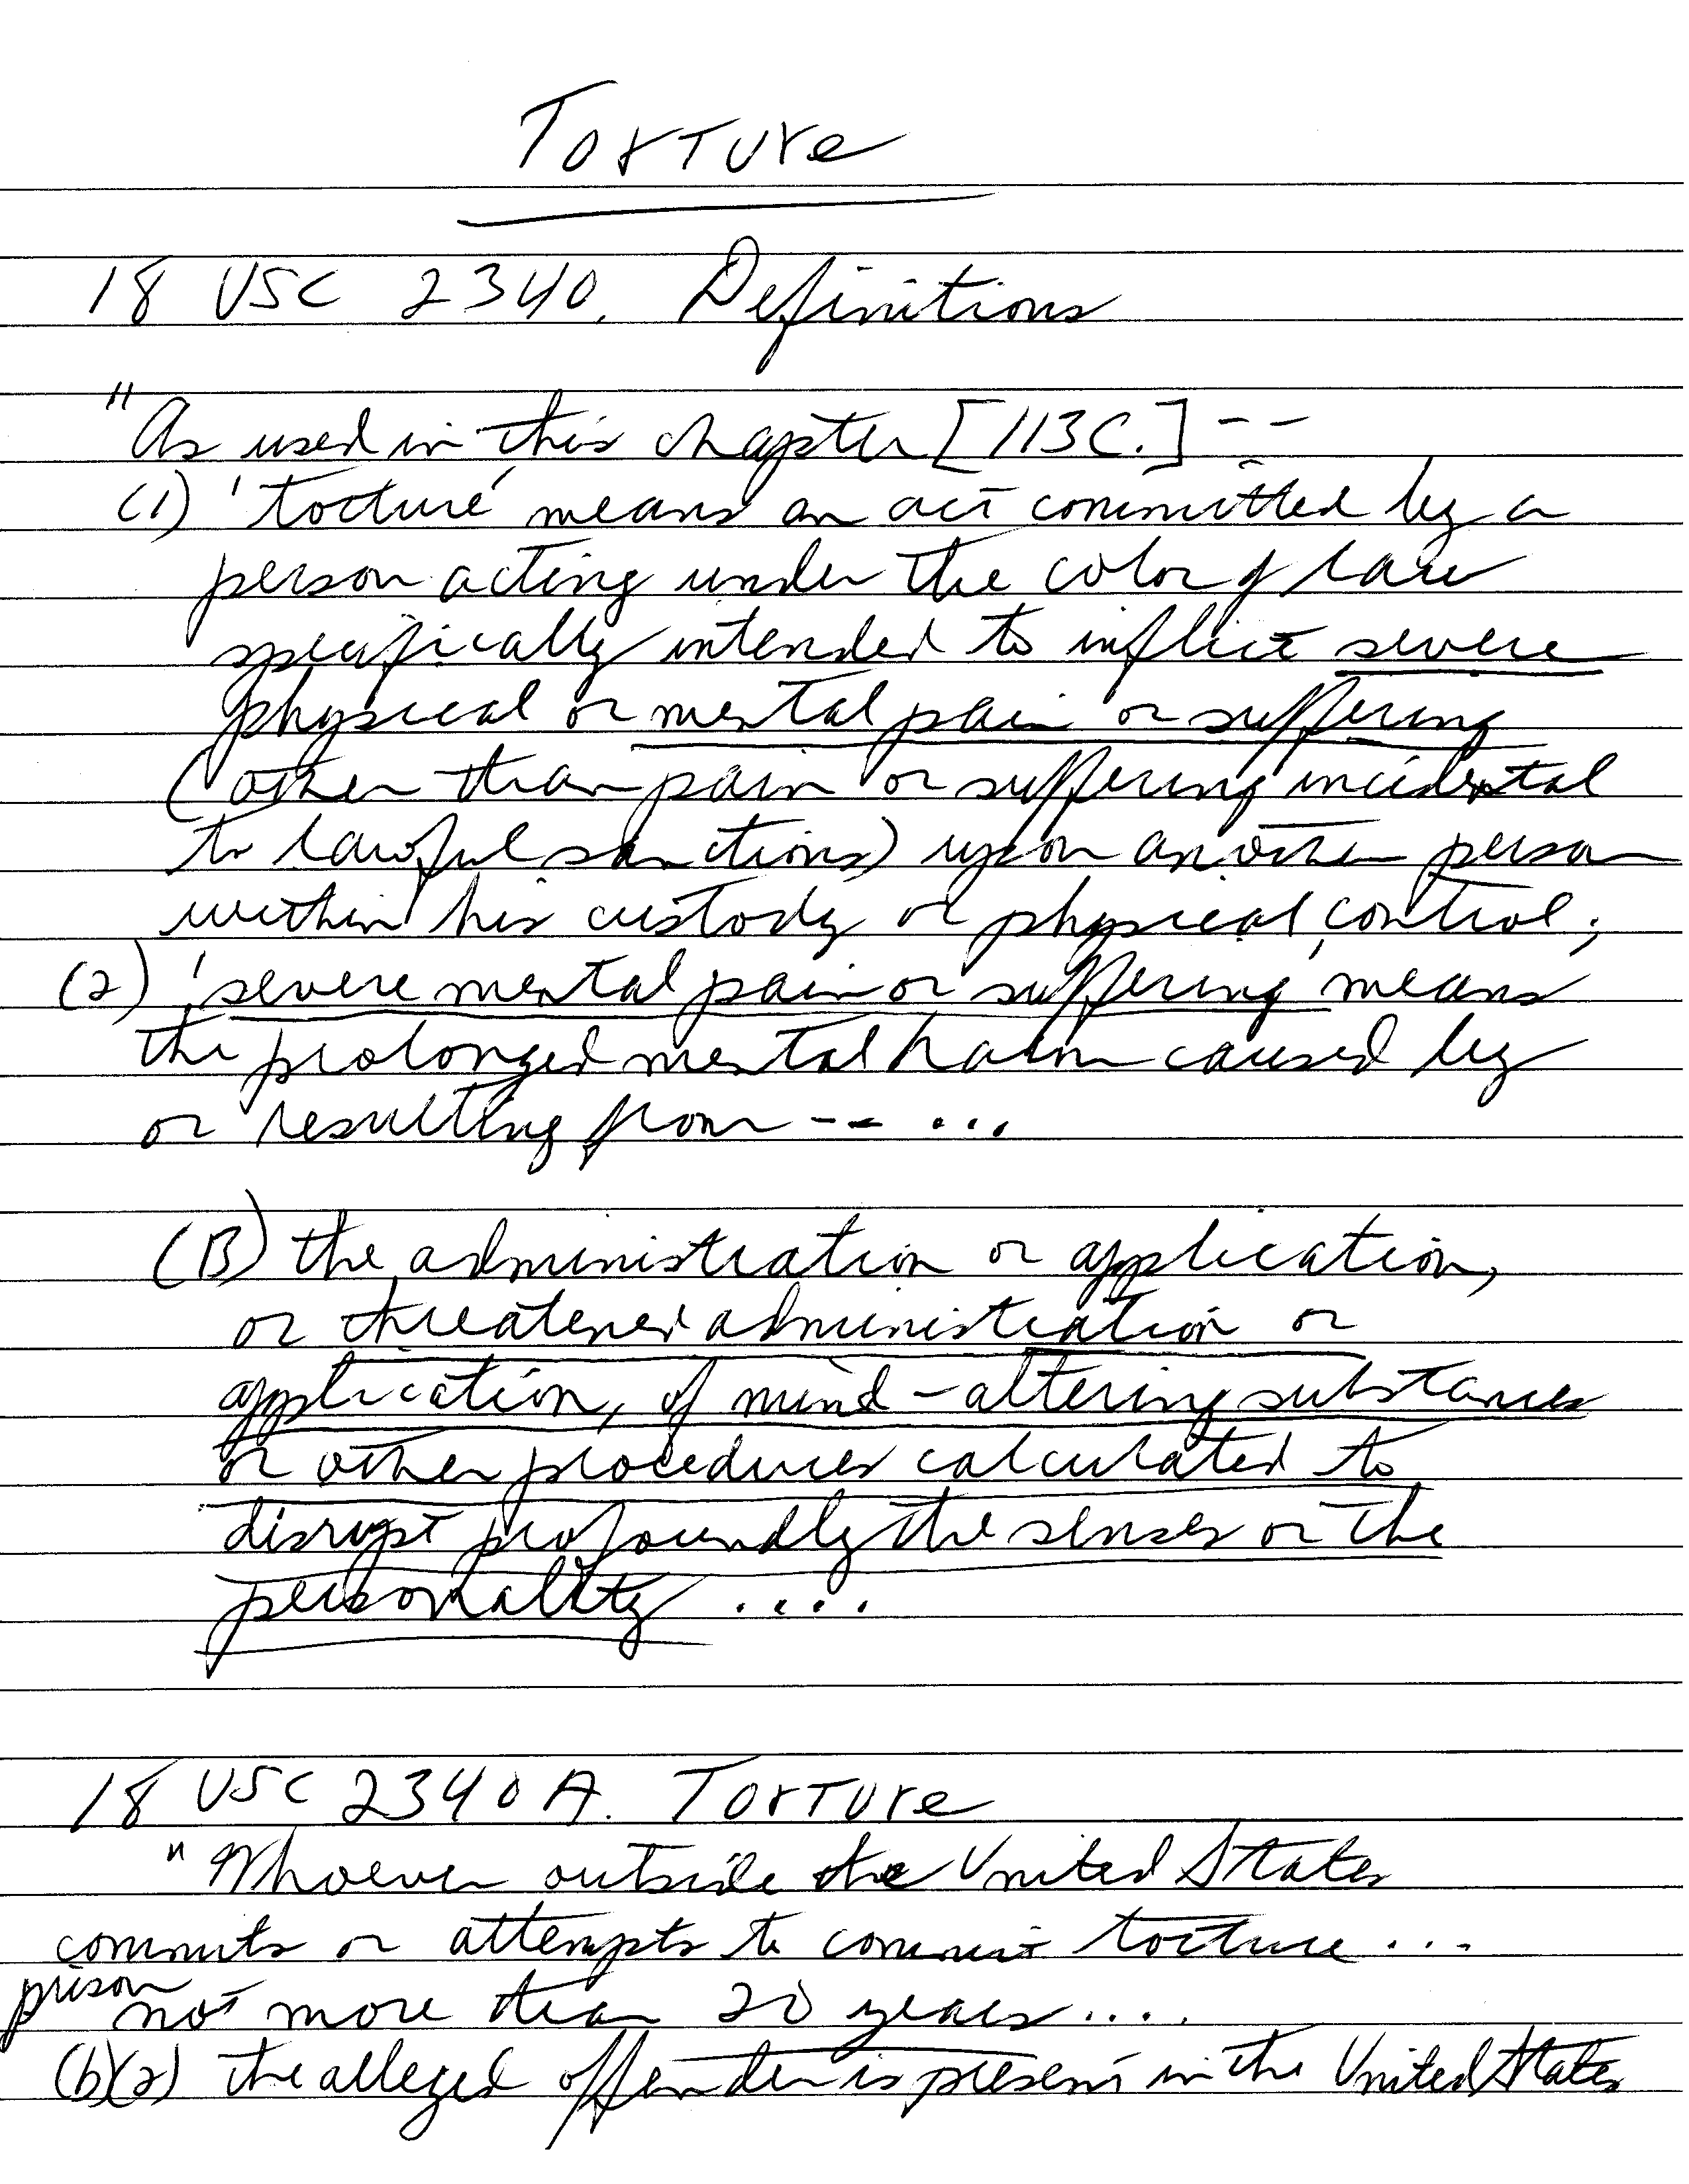 Torture
18 USC 2340. Definitions
"As used in this chapter [113C.] --
(1) 'torture' means an act committed by a
person acting under the color of law
specifically intended to inflict severe
physical or mental pain or suffering
(other than pain or suffering incidental
to lawful sanctions) upon another person
within his custody or physical control;
(2) 'severe mental pain or suffering' means
the prolonged mental harm caused by
or resulting from -- ...
(B) the administration or application,
or threatened administration or
application, of mind-altering substances
or other procedures calculated to
disrupt profoundly the senses or the
personality ....
18 USC 2340A. Torture
"Whoever outside the United States
commits or attempts to commit torture ...
prison
not more than 20 years ....
(b)(2) the alleged offender is present in the United States